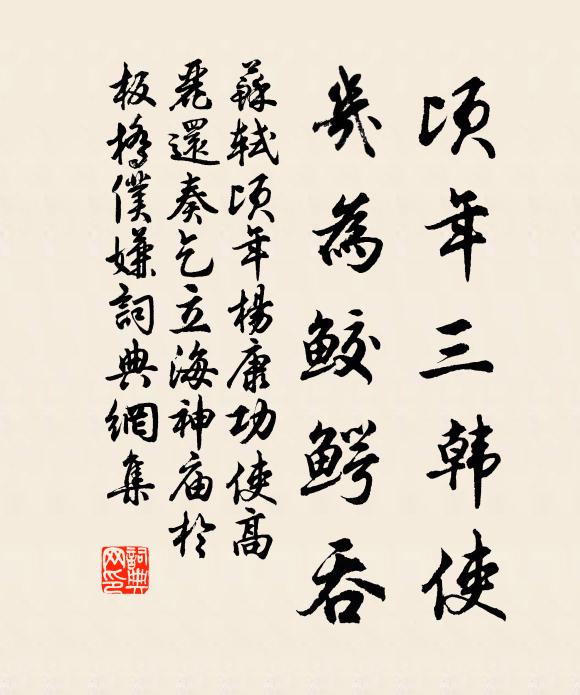 頃年三韩使
幾為鮫鳄吞
蘇軾頃年楊康功使高
麗還奏乞立海神庙於
板橋僕嫌詞典網集
詞典
网印